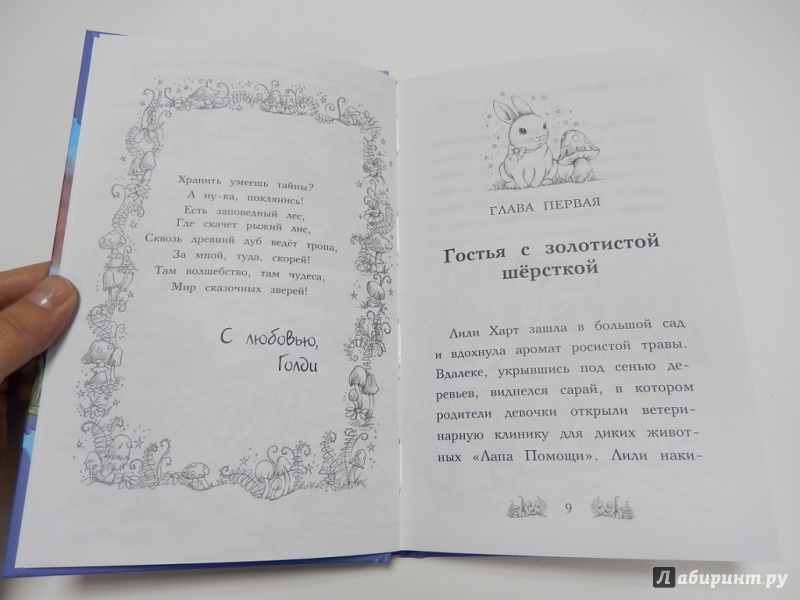 Хранить умеешь тайны?
А ну-ка, поклянись!
Есть заповедный лес,
Где скачет рыжий лис,
Сквозь древний дуб ведёт тропа,
За мной, туда, скорей!
Там волшебство, там чудеса,
Мир сказочных зверей!
С любовью,
Голди
ГЛАВА ПЕРВАЯ
Гостья с золотистой
шёрсткой
Лили Харт зашла в большой сад
и вдохнула аромат росистой травы.
Вдалеке, укрывшись под сенью де-
ревьев, виднелся сарай, в котором
родители девочки открыли ветери-
нарную клинику для диких живот-
ных «Лапа Помощи». Лили наки-
9
Лабиринт.ру